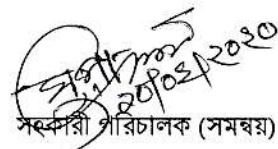 ২০/০২/২০২০
সহকারী পরিচালক (সমন্বয়)